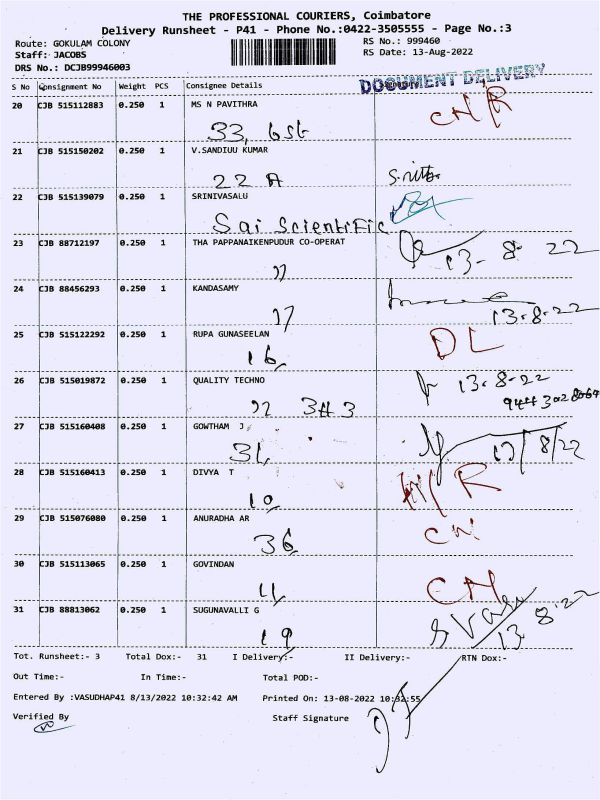 THE PROFESSIONAL COURIERS, Coimbatore
Delivery Runsheet - P41 - Phone No.:0422-3505555 - Page No.:3
Route: GOKULAM COLONY RS No.: 999460
Staff: JACOBS RS Date: 13-Aug-2022
DRS No.: DCJB99946003
DOCUMENT DELIVERY
S No Consignment No Weight PCS Consignee Details
20 CJB 515112883 0.250 1 MS N PAVITHRA
33, CN/R
21 CJB 515150202 0.250 1 V.SANDIUU KUMAR
22 A
22 CJB 515139079 0.250 1 SRINIVASALU
Sai Scientific
23 CJB 88712197 0.250 1 THA PAPPANAIKENPUDUR CO-OPERAT
13-8-22
24 CJB 88456293 0.250 1 KANDASAMY
17 13.8.22
25 CJB 515122292 0.250 1 RUPA GUNASEELAN
16 DL
26 CJB 515019872 0.250 1 QUALITY TECHNO
13.8-22
27 CJB 515160408 0.250 1 GOWTHAM J
31 13/8/22
28 CJB 515160413 0.250 1 DIVYA T
10 R
29 CJB 515076080 0.250 1 ANURADHA AR
36 CN
30 CJB 515113065 0.250 1 GOVINDAN
11 CN
31 CJB 88813062 0.250 1 SUGUNAVALLI G
19 13-8-22
Tot. Runsheet:- 3 Total Dox:- 31 I Delivery:- II Delivery:- RTN Dox:-
Out Time:- In Time:- Total POD:-
Entered By :VASUDHAP41 8/13/2022 10:32:42 AM Printed On: 13-08-2022 10:32:55
Verified By Staff Signature